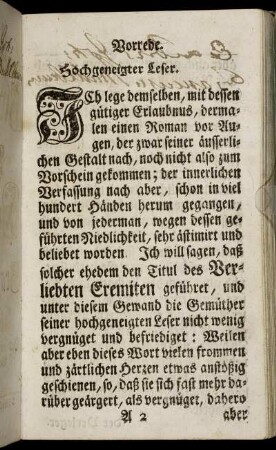 Vorrede.
Hochgeneigter Leser.
ICh lege demselben, mit dessen
gütiger Erlaubnus, derma-
len einen Roman vor Au-
gen, der zwar seiner äusserli-
chen Gestalt nach, noch nicht also zum
Vorschein gekommen; der innerlichen
Verfassung nach aber, schon in viel
hundert Händen herum gegangen,
und von jederman, wegen dessen ge-
führten Niedlichkeit, sehr ästimirt und
beliebet worden. Ich will sagen, daß
solcher ehedem den Titul des Ver-
liebten Eremiten geführet, und
unter diesem Gewand die Gemüther
seiner hochgeneigten Leser nicht wenig
vergnüget und befriediget: Weilen
aber eben dieses Wort vielen frommen
und zärtlichen Herzen etwas anstößig
geschienen, so, daß sie sich fast mehr da-
rüber geärgert, als vergnüget, dahero
A 2 aber